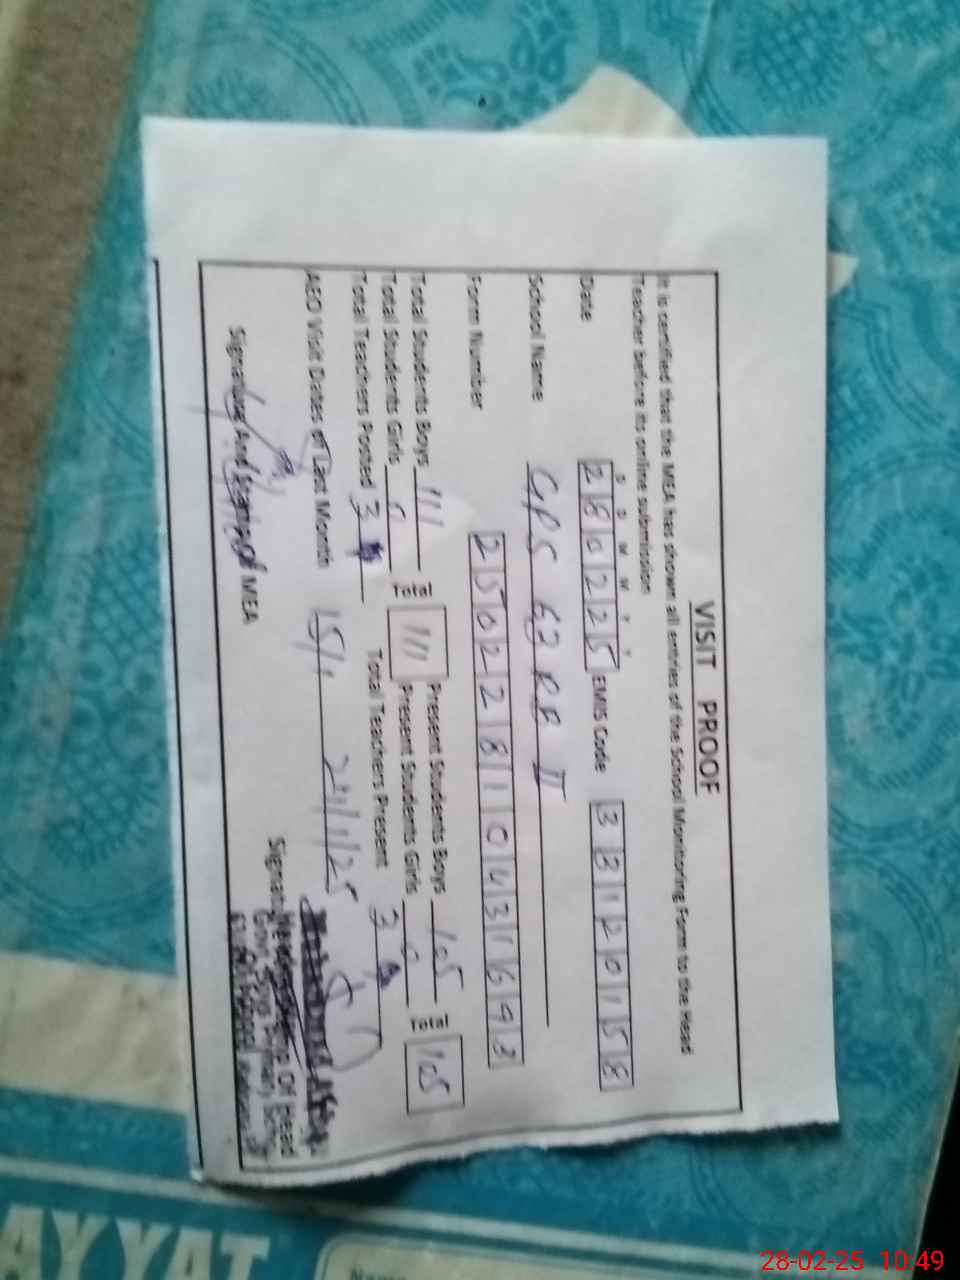 VISIT PROOF
It is certified that the MEA has shown all entries of the School Monitoring Form to the Head
Teacher before its online submission
D D M M Y Y
Date 280225 EMIS Code 33120158
School Name GPS 63 RB II
Form Number 2502281104316993
Total Students Boys 111 Total 111 Present Students Boys 105 Total 105
Total Students Girls 0 Present Students Girls 0
Total Teachers Posted 3 Total Teachers Present 3
AEO Visit Dates of Last Month 15/1 24/1/25
Signature And Stamp of MEA
Of Head
AYYAT
28-02-25 10:49